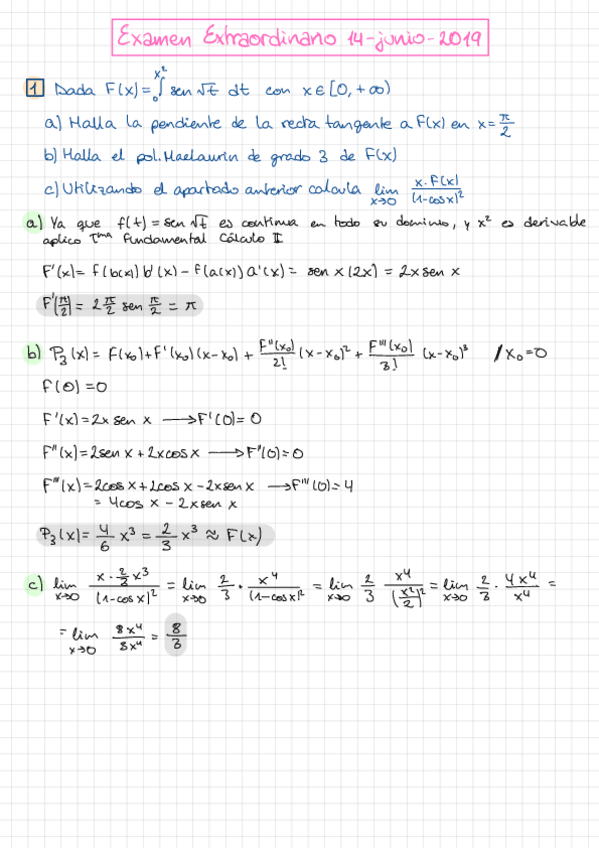 Examen Extraordinario 14-junio-2019
1 Dada F(x) = ∫₀^{x²} sen √t dt con x ∈ [0, +∞)
a) Halla la pendiente de la recta tangente a F(x) en x = π/2
b) Halla el pol. Maclaurin de grado 3 de F(x)
c) Utilizando el apartado anterior calcula lim x→0 x·F(x)/(1-cosx)²
a) Ya que f(t) = sen √t es continua en todo su dominio, y x² es derivable
aplico Tma Fundamental Cálculo I
F'(x) = f(b(x)) b'(x) - f(a(x)) a'(x) = sen x (2x) = 2x sen x
F'(π/2) = 2 π/2 sen π/2 = π
b) P₃(x) = F(x₀) + F'(x₀)(x-x₀) + F''(x₀)/2! (x-x₀)² + F'''(x₀)/3! (x-x₀)³ / x₀=0
F(0) = 0
F'(x) = 2x sen x → F'(0) = 0
F''(x) = 2sen x + 2x cos x → F''(0) = 0
F'''(x) = 2cos x + 2cos x - 2x sen x → F'''(0) = 4
= 4cos x - 2x sen x
P₃(x) = 4/6 x³ = 2/3 x³ ≈ F(x)
c) lim x→0 x · 2/3 x³/(1-cosx)² = lim x→0 2/3 · x⁴/(1-cosx)² = lim x→0 2/3 x⁴/(x²/2)² = lim x→0 2/3 · 4x⁴/x⁴ =
= lim x→0 8x⁴/3x⁴ = 8/3